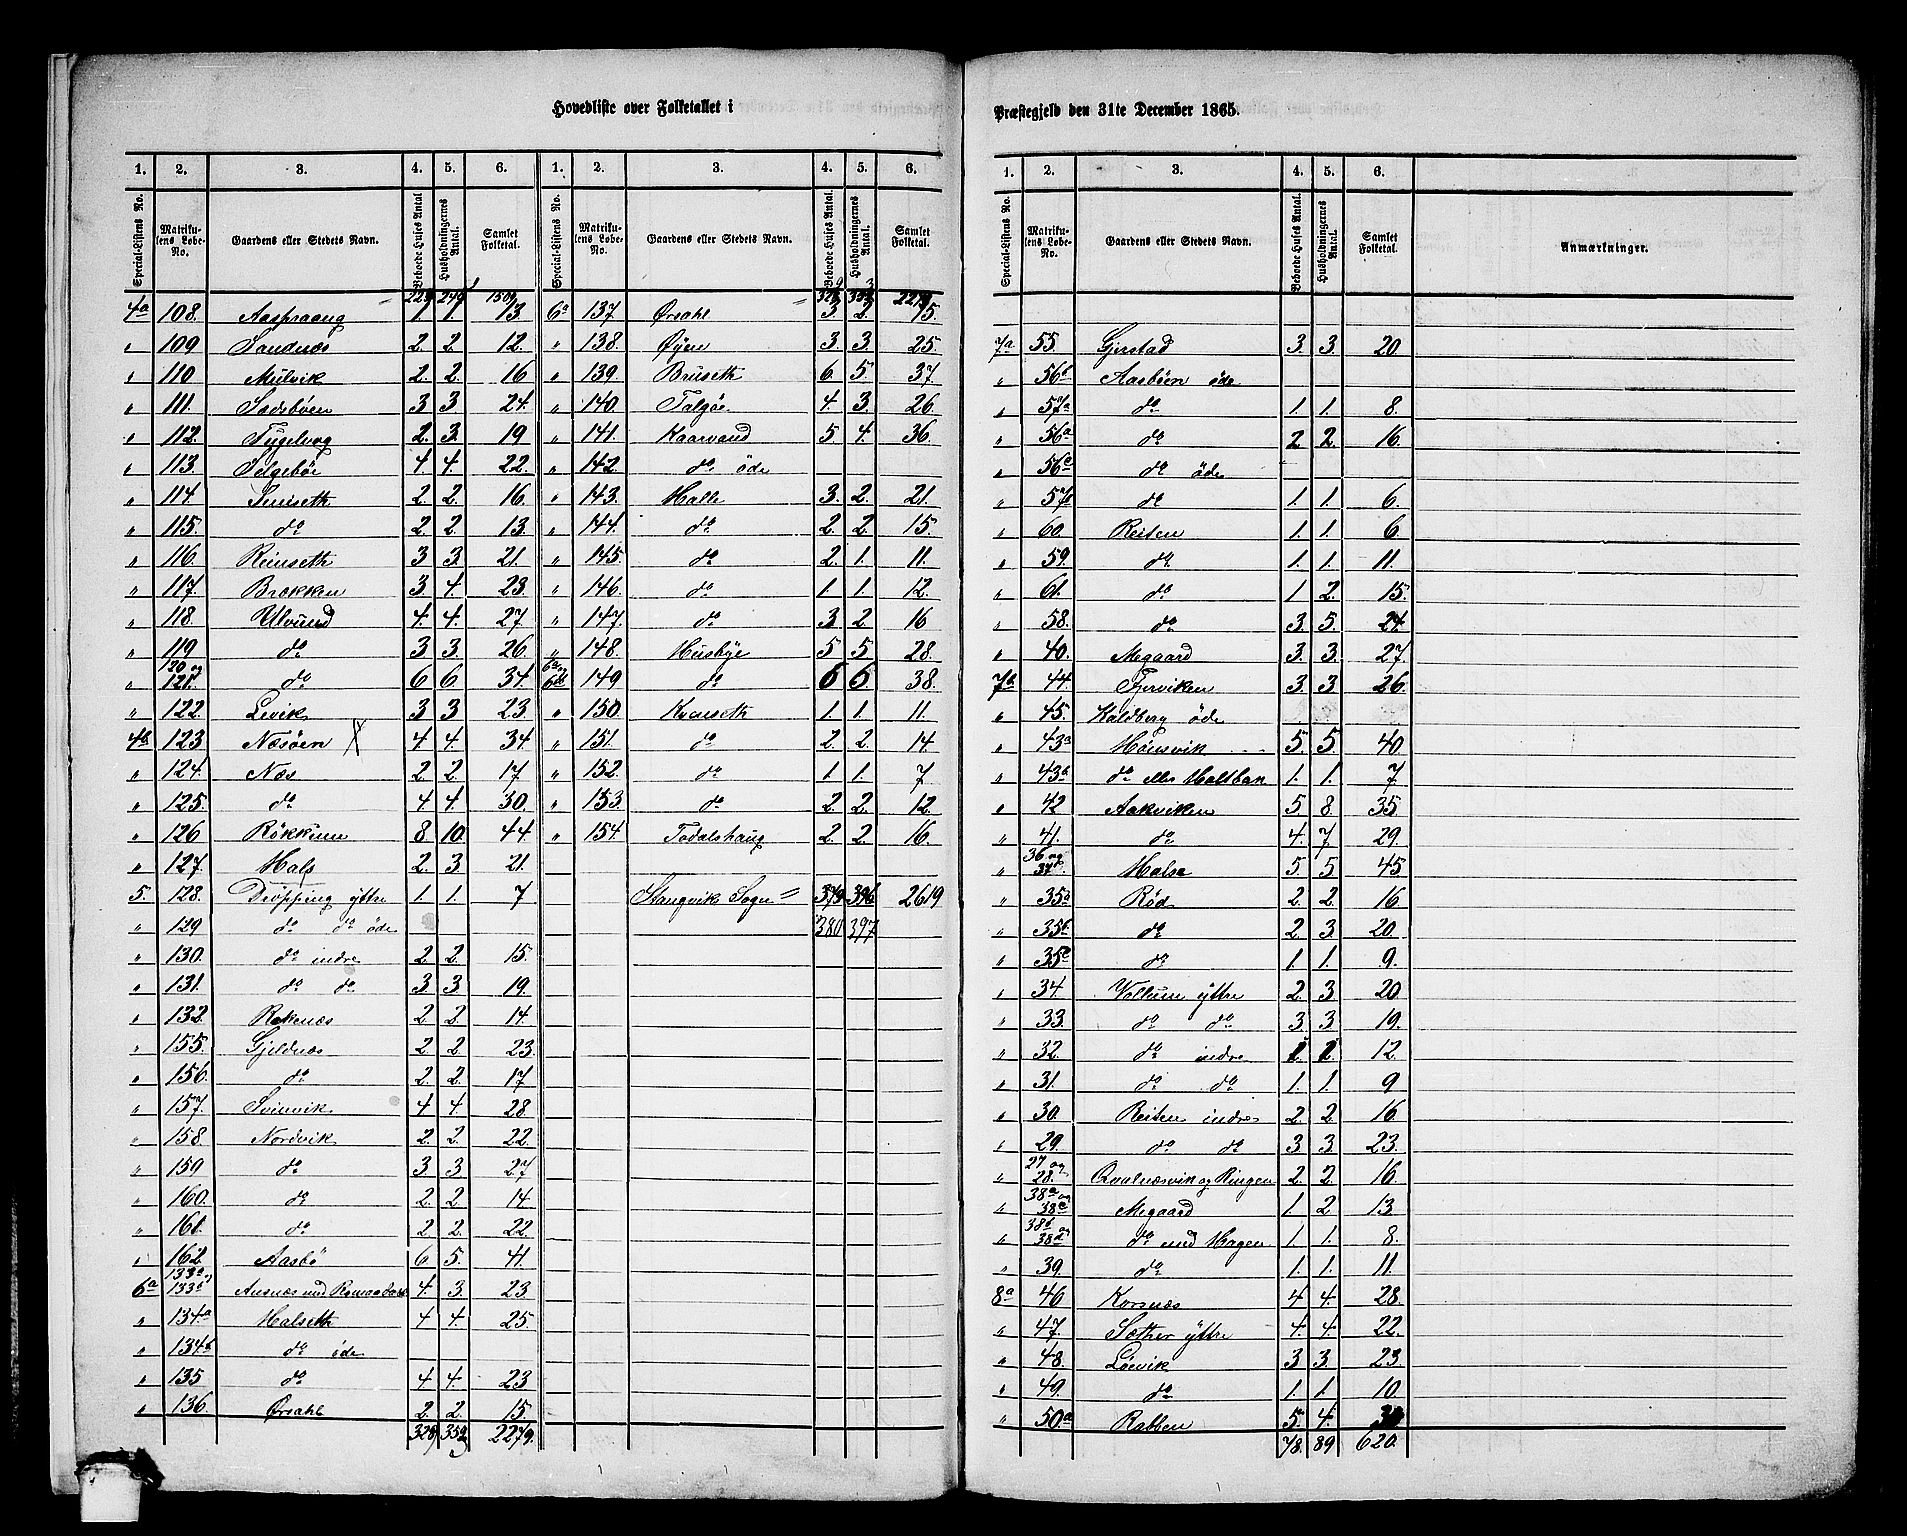 Hovedliste over Folketallet i
1. 2. 3. 4. 5. 6. 1. 2. 3. 4. 5. 6.
Special-Listens No. Matrikulens Løbe-No. Gaardens eller Stedets Navn. Beboede Huses Antal Husholdningernes Antal. Samlet Folketal. Special-Listens No. Matrikulens Løbe-No. Gaardens eller Stedets Navn. Beboede Huses Antal. Husholdningernes Antal. Samlet Folketal.
4a 108. Aaspraang 1. 1. 13. 6a 137. Ørsahl 3. 2. 15.
" 109 Sandnæs 2. 2. 12. " 138. Øyen 3. 3. 25.
" 110 Mulvik 2. 2. 16 " 139. Bruseth 6. 5. 37
" 111. Sadsbøen 3 3. 24. " 140. Talgøe 4. 3. 26.
" 112. Tygelvog 2. 3. 19 " 141. Kaarvand 5 4. 36.
" 113. Selgebøe 4. 4. 22. " 142. do øde
" 114. Sinseth 2. 2. 16. " 143. Halle 3. 2. 21.
" 115. do 2. 2. 13. " 144. do 2. 2. 15.
" 116. Reinseth 3 3. 21. " 145. do 2. 1. 11.
" 117. Brækken 3. 4. 23. " 146. do 1. 1. 12.
" 118. Ulvund 4. 4. 27 " 147. do 3. 2. 16
" 119 do 3 3. 26. " 148. Husbye 5 5. 28.
" 120 og 121. do 6 6. 34. 6a og 6b 149 do 6 5. 38.
" 122. Levik 3 3. 23. " 150. Kvenseth 1. 1. 11.
4b 123 Næsøen X 4. 4. 34 " 151. do 2. 2. 14.
" 124. Næs 2. 2. 17 " 152. do 1. 1. 7
" 125. do 4. 4. 30. " 153. do 2. 2. 12.
" 126 Røkkum 8. 10. 44 " 154. Todalshaug 2. 2. 16.
" 127. Hals 2. 3. 21.
5. 128. Drøpping yttre 1. 1. 7 Stangvik Sogn = 379 396 2619
" 129 do do øde 380 397
" 130. do indre 2. 2. 15.
" 131. do do 3 3. 19.
" 132. Røkenæs 2. 2. 14.
" 155. Gjeldnæs 2. 2. 23.
" 156. do 2. 2. 17
" 157. Svinvik 4 4. 28
" 158. Nordvik 2. 2. 22.
" 159 do 3. 3 27
" 160. do 2. 2. 14.
" 161. do 2 2. 22.
" 162. Aasbø 6 5. 41.
6a 133a og 133b Ausnæs med 4. 3. 23
" 134a Halseth 4 4. 25.
" 134b do øde
" 135 do 4 4. 23
" 136. Ørsahl 2. 2. 15.
2279.
Præstegjeld den 31te December 1865.
1. 2. 3. 4. 5. 6.
Special-Listens No. Matrikulens Løbe-No. Gaardens eller Stedets Navn. Beboede Huses Antal. Husholdningernes Antal. Samlet Folketal. Anmærkninger.
7a 55. Gjerstad 3. 3. 20
" 56b Aasbøen øde
" 57a do 1. 1. 8.
" 56a do 2 2. 16.
" 56c do øde
" 57b do 1. 1. 6.
" 60. Reiten 1. 1. 6
" 59. do 1. 1. 11.
" 61. do 1 2. 15.
" 58. do 3. 5. 24.
" 40. Megaard 3. 3. 27
7b 44. Fjerviken 3. 3 26.
" 45. Kaldberg øde
" 43a Hønsvik 5. 5 40
" 43b do eller Haltbak 1. 1. 7
" 42 Aakviken 5 8. 35.
" 41. do 4. 7. 29.
" 36 og 37 Halse 5. 5 45
" 35a Rød 2. 2. 16
" 35b do 2. 3. 20.
" 35c do 1. 1. 9.
" 34. Vollum yttre 2. 3 20
" 33. do do 3. 3 19.
" 32. do indre 1. 1. 12.
" 31. do do 1. 1. 9
" 30. Reiten indre 2. 2. 16
" 29. do do 3 3. 23.
" 27 og 28. Qvalnæsvik og Ringen 2. 2. 16
" 38a og 38c Megaard 1. 2. 13
" 38b og 38d do med Hagen 1. 1. 8.
" 39. do 1. 1. 11.
8a 46 Korsnæs 4 4. 28.
" 47. Sæther yttre 4. 4. 22.
" 48. Løevik 3 3. 23.
" 49. do 1. 1. 10
" 50a Rabben 5. 4.
78. 89 620.